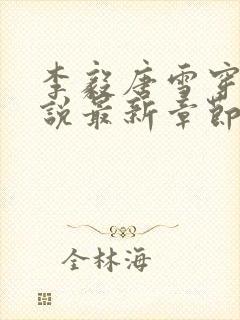 李毅唐雪穿
说最新章节
全林海